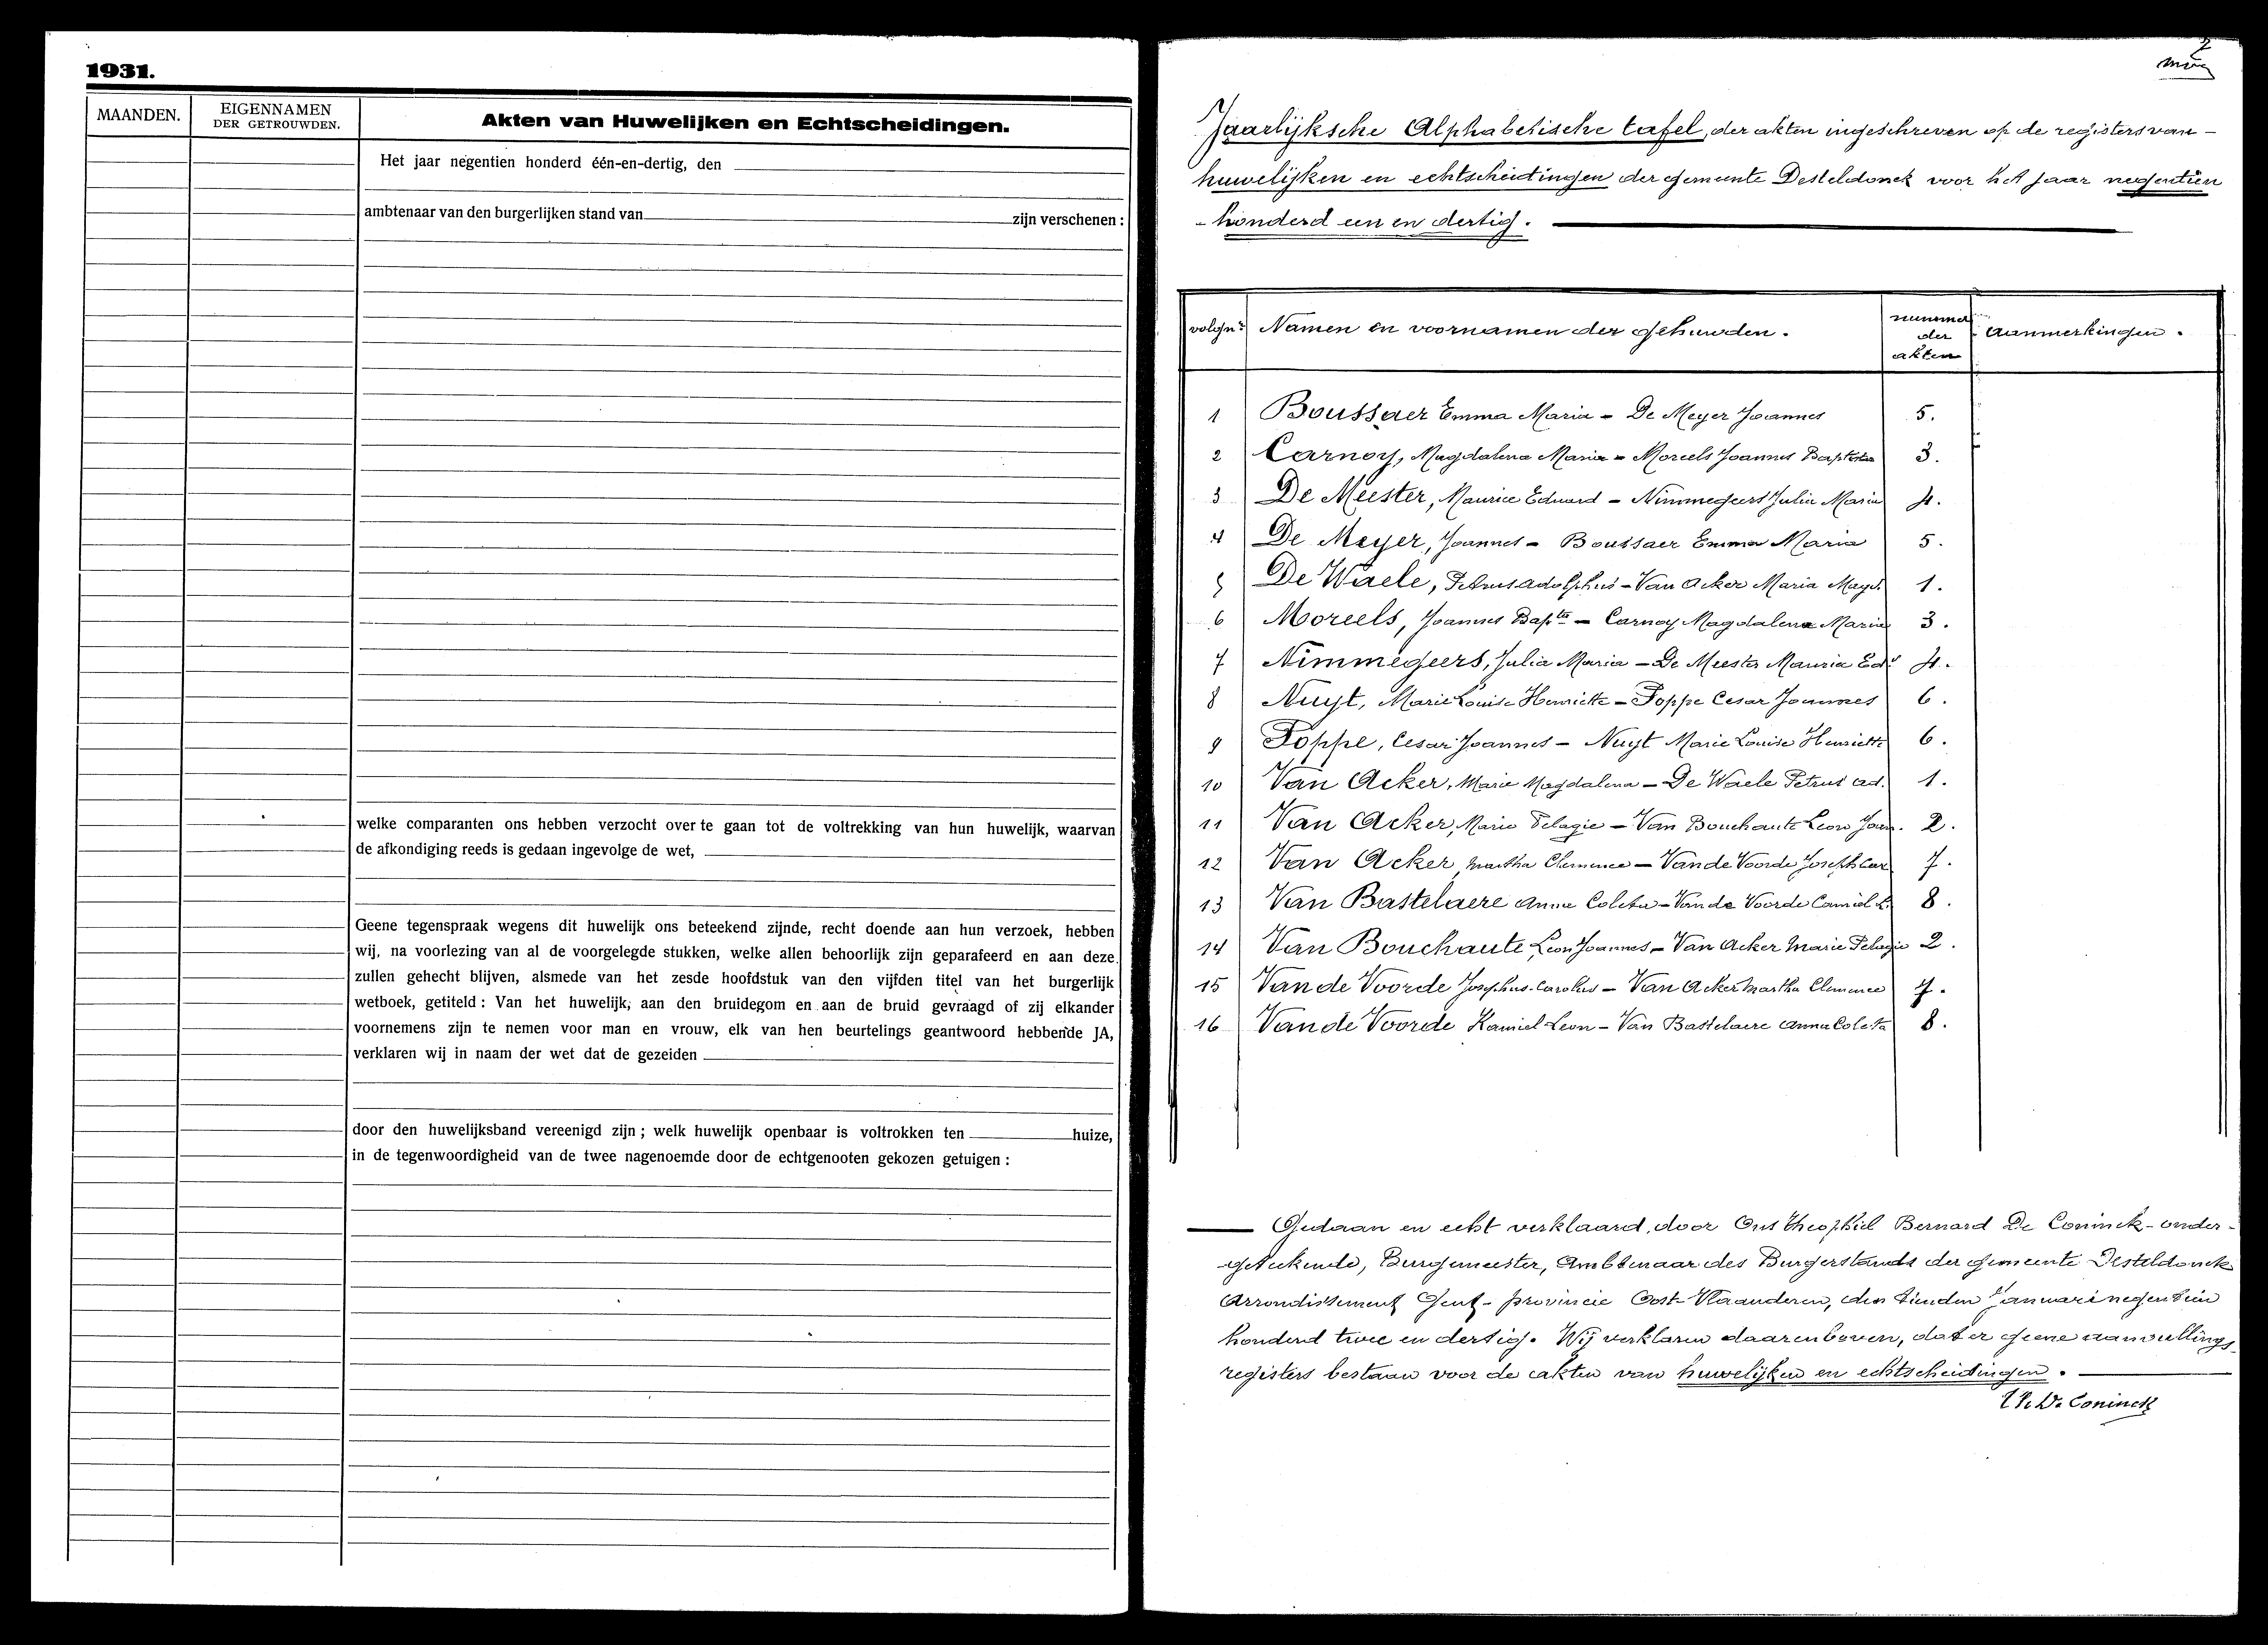 1931.
MAANDEN.
EIGENNAMEN
DER GETROUWDEN.
Akten van Huwelijken en Echtscheidingen.
Het jaar negentien honderd één-en-dertig, den
ambtenaar van den burgerlijken stand van zijn verschenen :
welke comparanten ons hebben verzocht over te gaan tot de voltrekking van hun huwelijk, waarvan
de afkondiging reeds is gedaan ingevolge de wet,
Geene tegenspraak wegens dit huwelijk ons beteekend zijnde, recht doende aan hun verzoek, hebben
wij, na voorlezing van al de voorgelegde stukken, welke allen behoorlijk zijn geparafeerd en aan deze
zullen gehecht blijven, alsmede van het zesde hoofdstuk van den vijfden titel van het burgerlijk
wetboek, getiteld : Van het huwelijk, aan den bruidegom en aan de bruid gevraagd of zij elkander
voornemens zijn te nemen voor man en vrouw, elk van hen beurtelings geantwoord hebbende JA,
verklaren wij in naam der wet dat de gezeiden
door den huwelijksband vereenigd zijn ; welk huwelijk openbaar is voltrokken ten huize,
in de tegenwoordigheid van de twee nagenoemde door de echtgenooten gekozen getuigen :
2
Jaarlijksche Alphabetische tafel, der akten ingeschreven op de registers van -
huwelijken en echtscheidingen der gemeente Desteldonck voor het jaar negentien
- honderd een en dertig.
volgnr Namen en voornamen der gehuwden. nummer der akten aanmerkingen.
1 Boussaer Emma Maria - De Meyer Joannes 5.
2 Carnoy, Magdalena Maria - Moreels Joannes Baptista 3.
3 De Meester, Maurice Eduard - Nimmegeers Julia Maria 4.
4 De Meyer, Joannes - Boussaer Emma Maria 5.
5 De Waele, Petrus adolphus - Van Acker Maria Magd. 1.
6 Moreels, Joannes Bapta - Carnoy Magdalena Maria 3.
7 Nimmegeers, Julia Maria - De Meester Maurice Edd 4.
8 Nuyt, Marie Louise Henriette - Poppe Cesar Joannes 6.
9 Poppe, Cesar Joannes - Nuyt Marie Louise Henriette 6.
10 Van Acker, Marie Magdalena - De Waele Petrus ad. 1.
11 Van Acker, Marie Pelagie - Van Bouchaute Leon Joan. 2.
12 Van Acker, Martha Clemence - Van de Voorde Joseph Car 7.
13 Van Bastelaere Anna Coleta - Van de Voorde Camiel L. 8.
14 Van Bouchaute Leon Joannes - Van Acker Marie Pelagie 2.
15 Van de Voorde Josephus-Carolus - Van Acker Martha Clemence 7.
16 Van de Voorde Kamiel Leon - Van Bastelaere Anna Coleta 8.
Gedaan en echt verklaard, door Ons Theophiel Bernard De Coninck - onder-
geteekende, Burgemeester, Ambtenaar des Burgerstands der gemeente Desteldonck
Arrondissement Gent - provincie Oost-Vlaanderen, den tienden Januari negentien
honderd twee en dertig. Wij verklaren daarenboven, dat er geene aanvullings
registers bestaan voor de akten van huwelijken en echtscheidingen.
Th. De Coninck